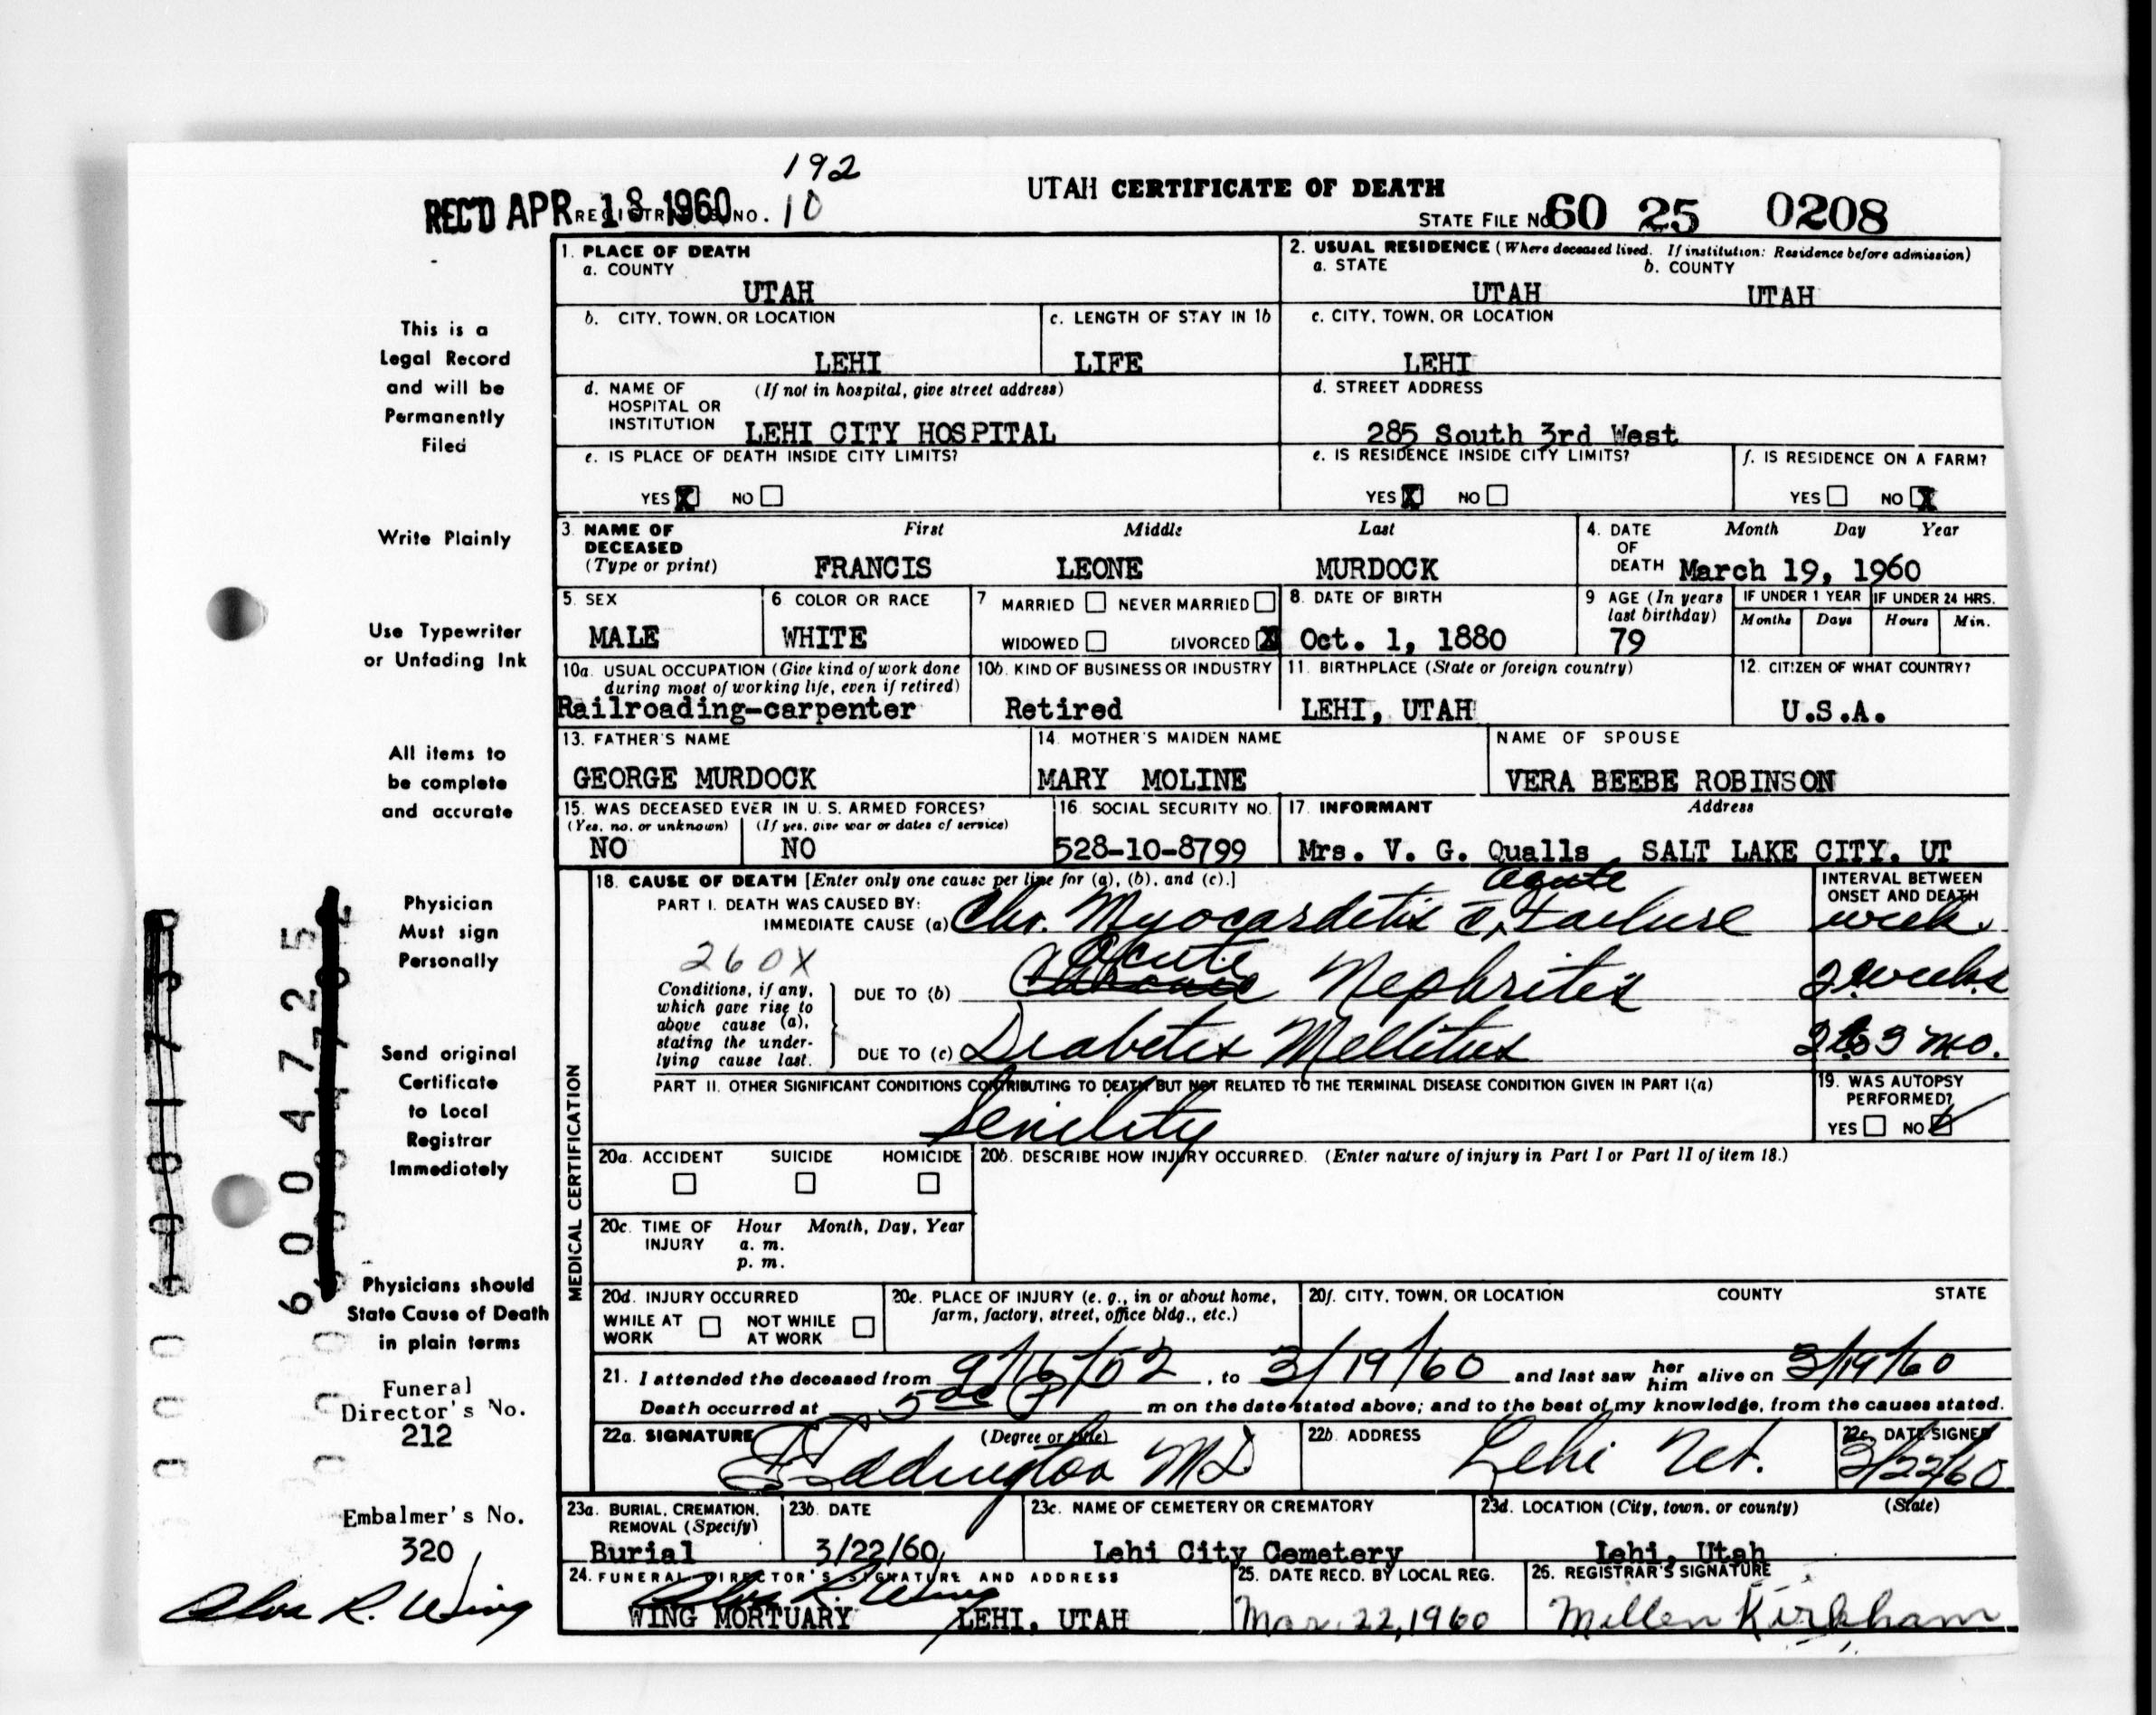 192
UTAH CERTIFICATE OF DEATH
REC'D APR 18 1960 NO. 10
STATE FILE NO. 60 25 0208
1. PLACE OF DEATH
a. COUNTY
UTAH
2. USUAL RESIDENCE (Where deceased lived. If institution: Residence before admission)
a. STATE b. COUNTY
UTAH UTAH
b. CITY, TOWN, OR LOCATION
LEHI
c. LENGTH OF STAY IN 1b
LIFE
c. CITY, TOWN, OR LOCATION
LEHI
d. NAME OF (If not in hospital, give street address)
HOSPITAL OR
INSTITUTION LEHI CITY HOSPITAL
d. STREET ADDRESS
285 South 3rd West
e. IS PLACE OF DEATH INSIDE CITY LIMITS?
YES X NO
e. IS RESIDENCE INSIDE CITY LIMITS?
YES X NO
f. IS RESIDENCE ON A FARM?
YES NO X
3. NAME OF DECEASED (Type or print)
First Middle Last
FRANCIS LEONE MURDOCK
4. DATE OF DEATH
Month Day Year
March 19, 1960
5. SEX
MALE
6. COLOR OR RACE
WHITE
7 MARRIED NEVER MARRIED
WIDOWED DIVORCED X
8. DATE OF BIRTH
Oct. 1, 1880
9 AGE (In years last birthday)
79
IF UNDER 1 YEAR IF UNDER 24 HRS.
Months Days Hours Min.
10a. USUAL OCCUPATION (Give kind of work done
during most of working life, even if retired)
Railroading-carpenter
10b. KIND OF BUSINESS OR INDUSTRY
Retired
11. BIRTHPLACE (State or foreign country)
LEHI, UTAH
12. CITIZEN OF WHAT COUNTRY?
U.S.A.
13. FATHER'S NAME
GEORGE MURDOCK
14. MOTHER'S MAIDEN NAME
MARY MOLINE
NAME OF SPOUSE
VERA BEEBE ROBINSON
15. WAS DECEASED EVER IN U. S. ARMED FORCES?
(Yes, no, or unknown) (If yes, give war or dates of service)
NO NO
16. SOCIAL SECURITY NO.
528-10-8799
17. INFORMANT Address
Mrs. V. G. Qualls SALT LAKE CITY, UT
MEDICAL CERTIFICATION
18. CAUSE OF DEATH [Enter only one cause per line for (a), (b), and (c).]
INTERVAL BETWEEN
ONSET AND DEATH
PART I. DEATH WAS CAUSED BY:
acute
IMMEDIATE CAUSE (a) Chr. Myocarditis c̄ Failure week
260X
Acute
Conditions, if any,
which gave rise to
above cause (a),
stating the under-
lying cause last.
DUE TO (b) Nephritis 2 weeks
DUE TO (c) Diabetes Mellitus 2 to 3 mo.
PART II. OTHER SIGNIFICANT CONDITIONS CONTRIBUTING TO DEATH BUT NOT RELATED TO THE TERMINAL DISEASE CONDITION GIVEN IN PART I(a)
Senility
19. WAS AUTOPSY
PERFORMED?
YES NO ✓
20a. ACCIDENT SUICIDE HOMICIDE
20b. DESCRIBE HOW INJURY OCCURRED. (Enter nature of injury in Part I or Part II of item 18.)
20c. TIME OF INJURY Hour Month, Day, Year
a. m.
p. m.
20d. INJURY OCCURRED
WHILE AT WORK NOT WHILE AT WORK
20e. PLACE OF INJURY (e. g., in or about home,
farm, factory, street, office bldg., etc.)
20f. CITY, TOWN, OR LOCATION COUNTY STATE
21. I attended the deceased from 9/16/52, to 3/19/60 and last saw her him alive on 3/19/60
Death occurred at 5 00 P m on the date stated above; and to the best of my knowledge, from the causes stated.
22a. SIGNATURE (Degree or title)
Eddington MD
22b. ADDRESS
Lehi Ut.
22c. DATE SIGNED
3/22/60
23a. BURIAL, CREMATION,
REMOVAL (Specify)
Burial
23b. DATE
3/22/60
23c. NAME OF CEMETERY OR CREMATORY
Lehi City Cemetery
23d. LOCATION (City, town, or county) (State)
Lehi, Utah
24. FUNERAL DIRECTOR'S SIGNATURE AND ADDRESS
Alva R. Wing
WING MORTUARY LEHI, UTAH
25. DATE RECD. BY LOCAL REG.
Mar. 22, 1960
26. REGISTRAR'S SIGNATURE
Millen Kirkham
This is a
Legal Record
and will be
Permanently
Filed
Write Plainly
Use Typewriter
or Unfading Ink
All items to
be complete
and accurate
Physician
Must sign
Personally
Send original
Certificate
to Local
Registrar
Immediately
Physicians should
State Cause of Death
in plain terms
Funeral
Director's No.
212
Embalmer's No.
320
Alva R. Wing
6004725